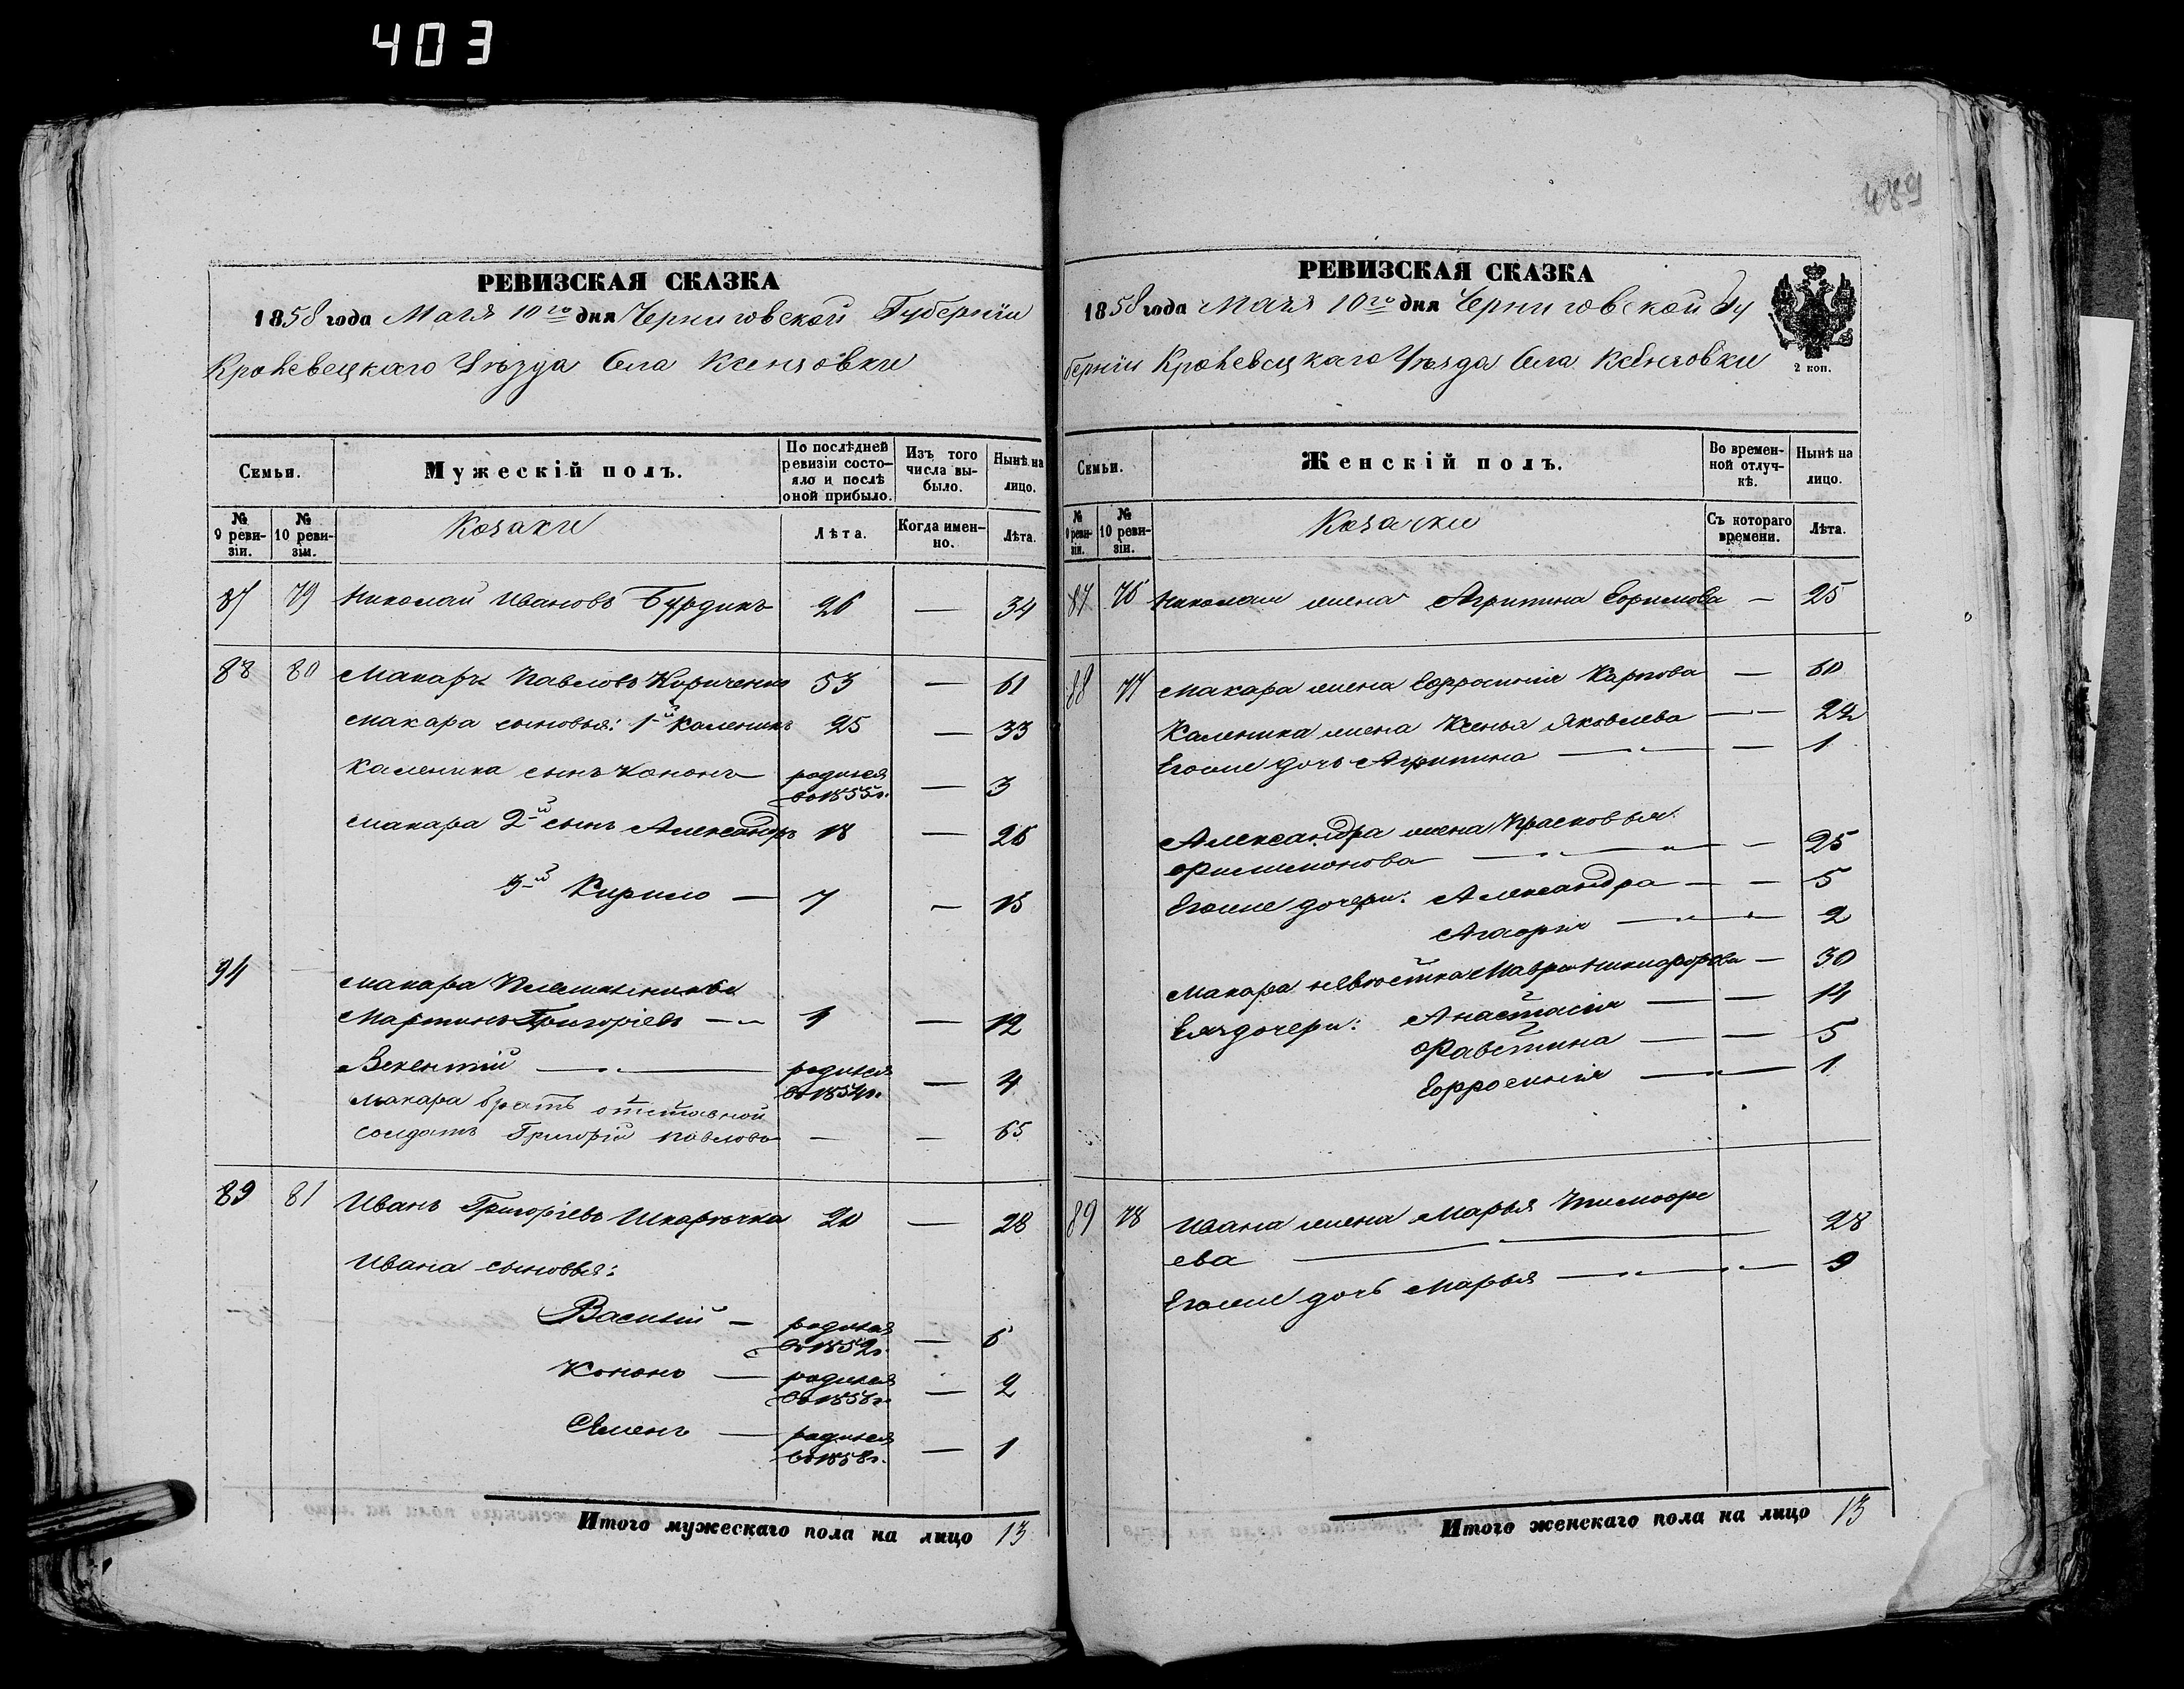 403
489
РЕВИЗСКАЯ СКАЗКА
1858 года Маия 10го дня Черниговской Губерніи
Кролевецкаго Уѣзда Села Ксензовки
Семьи.
Мужескій полъ.
По послѣдней ревизіи состояло и послѣ оной прибыло.
Изъ того числа выбыло.
Нынѣ на лицо.
№ 9 ревизіи.
№ 10 ревизіи.
Козаки
Лѣта.
Когда именно.
Лѣта.
87 79 Николай Ивановъ Бурдикъ 26 — 34
88 80 Макаръ Павловъ Кириченко 53 — 61
Макара сыновья: 1й Каленикъ 25 — 33
Каленика сынъ Кононъ родился въ 1855г. — 3
Макара 2й сынъ Александръ 18 — 26
3й Кирило — 7 — 15
94 — Макара Племянники
Мартинъ Григоріевъ — 12
Викентій — родился въ 1854г. — 4
Макара братъ отставной
солдатъ Григорій Павловъ — — 65
89 81 Иванъ Григоріевъ 20 — 28
Ивана сыновья:
Василій — родился въ 1852г. — 6
Кононъ — родился въ 1856г. — 2
Семенъ — родился — 1
Итого мужескаго пола на лицо 13
РЕВИЗСКАЯ СКАЗКА
1858 года Маия 10го дня Черниговской Гу
берніи Кролевецкаго Уѣзда Села Ксензовки
2 коп.
Семьи.
Женскій полъ.
Во временной отлучкѣ.
Нынѣ на лицо.
№ 9 ревизіи.
№ 10 ревизіи.
Козачки
Съ котораго времени.
Лѣта.
87 76 Николая жена Агрипина Ефимова — 25
88 77 Макара жена Ефросинія Карпова — 60
Каленика жена Ксенья Яковлева — 24
Егоже дочь Агрипина — 1
Александра жена Прасковья
Филимонова — 25
Егоже дочери: Александра — 5
Агафія — 2
Макара невѣстка Мавра Никифорова — 30
Ея дочери: Анастасія — 14
Фавстина — 5
Ефросинія — 1
89 78 Ивана жена Марья Тимофе
ева — 28
Егоже дочь Марья — 9
Итого женскаго пола на лицо 13